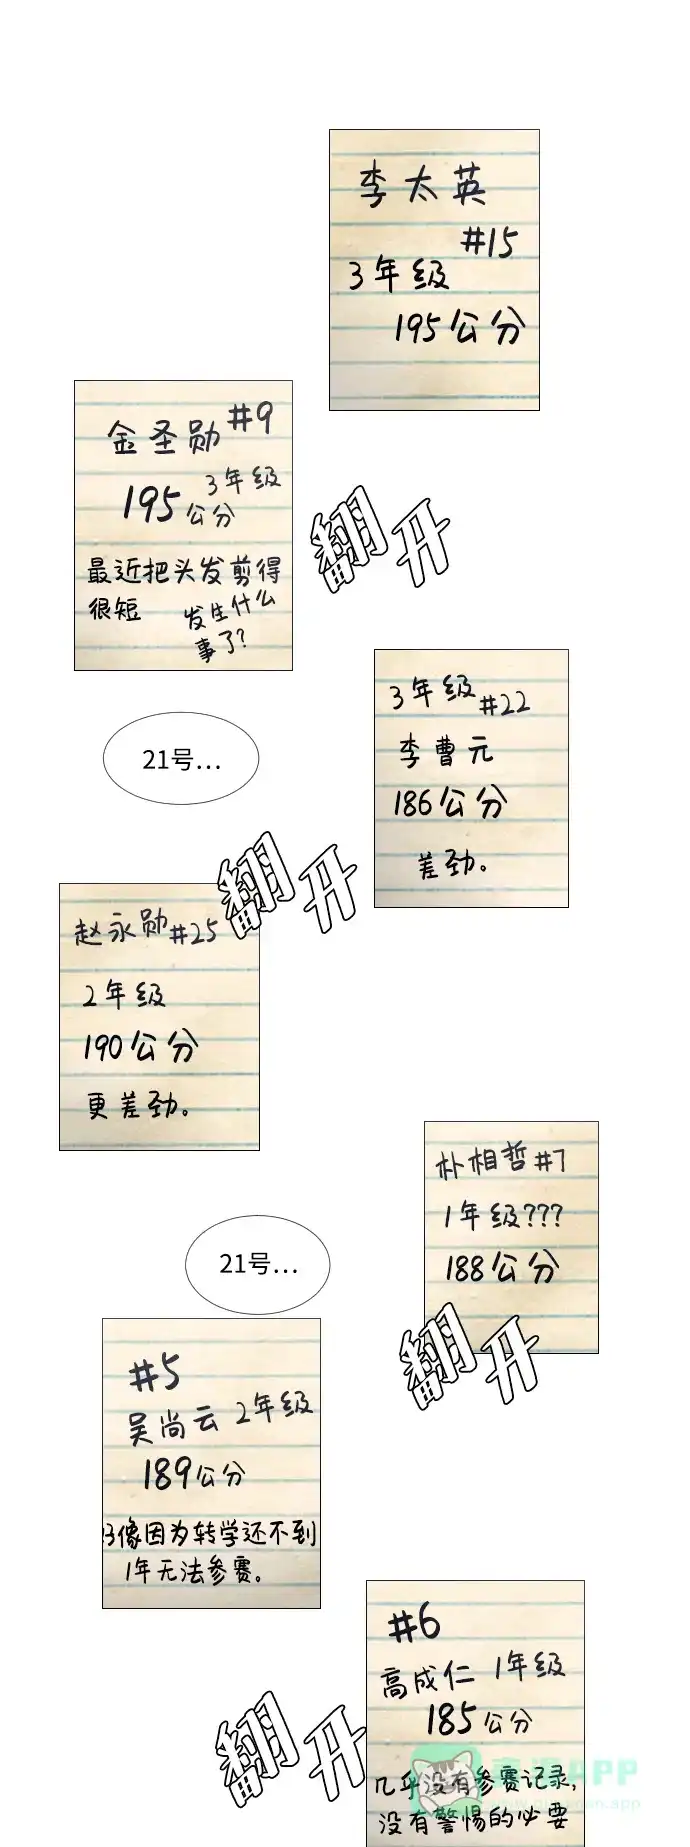 李太英
#15
3年级
195公分
#9
金圣勋
3年级
195公分
最近把头发剪得
很短
发生什么
事了?
翻开
3年级 #22
李曹元
186公分
差劲。
21号...
翻开
赵永勋#25
2年级
190公分
更差劲。
朴相哲#7
1年级???
188公分
21号...
翻开
#5
吴尚云 2年级
189公分
好像因为转学还不到
1年无法参赛。
#6
高成仁 1年级
185公分
几乎没有参赛记录,
没有警惕的必要
翻开